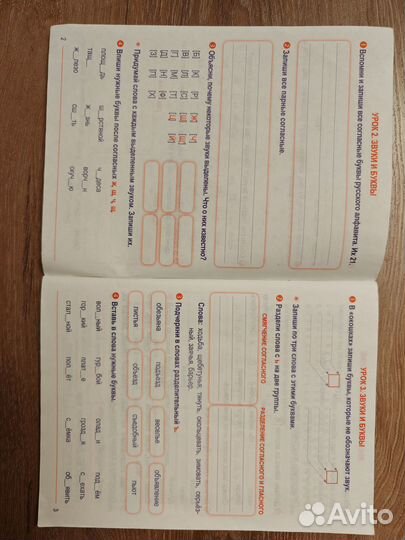 УРОК 2. ЗВУКИ И БУКВЫ
1 Вспомни и запиши все согласные буквы русского алфавита. Их 21.
2 Запиши все парные согласные.
3 Объясни, почему некоторые звуки выделены. Что о них известно?
[Б] [К] [Р] [Ж] [Ч]
[В] [Л] [С] [Ш] [Щ]
[Г] [М] [Т] [Ц] [Й]
[Д] [Н] [Ф]
[З] [П] [Х]
* Придумай слова с каждым выделенным звуком. Запиши их.
4 Впиши нужные буквы после согласных ж, ш, ч, щ.
площ__дь ш__ротный ч__деса
тащ__ ж__знь ворч__н
ж__лезо сш__ть скуч__ю
2
УРОК 3. ЗВУКИ И БУКВЫ
1 В «окошках» запиши буквы, которые не обозначают звук.
* Запиши по три слова с этими буквами.
2 Раздели слова с ь на две группы.
СМЯГЧЕНИЕ СОГЛАСНОГО РАЗДЕЛЕНИЕ СОГЛАСНОГО И ГЛАСНОГО
Слова: ходьба, щебетунья, тянуть, скользящий, зимовать, серьёз-
ный, заячья, барьер.
3 Подчеркни в словах разделительный ь.
обезьяна подъезд веселье объявление
листья объезд съедобный пьют
4 Вставь в слова нужные буквы.
вол__ный гур__бой олад__и под__ём
гор__кий плат__е грозд__я с__ехать
стал__ной пол__ёт с__ёмка об__явить
3
Avito